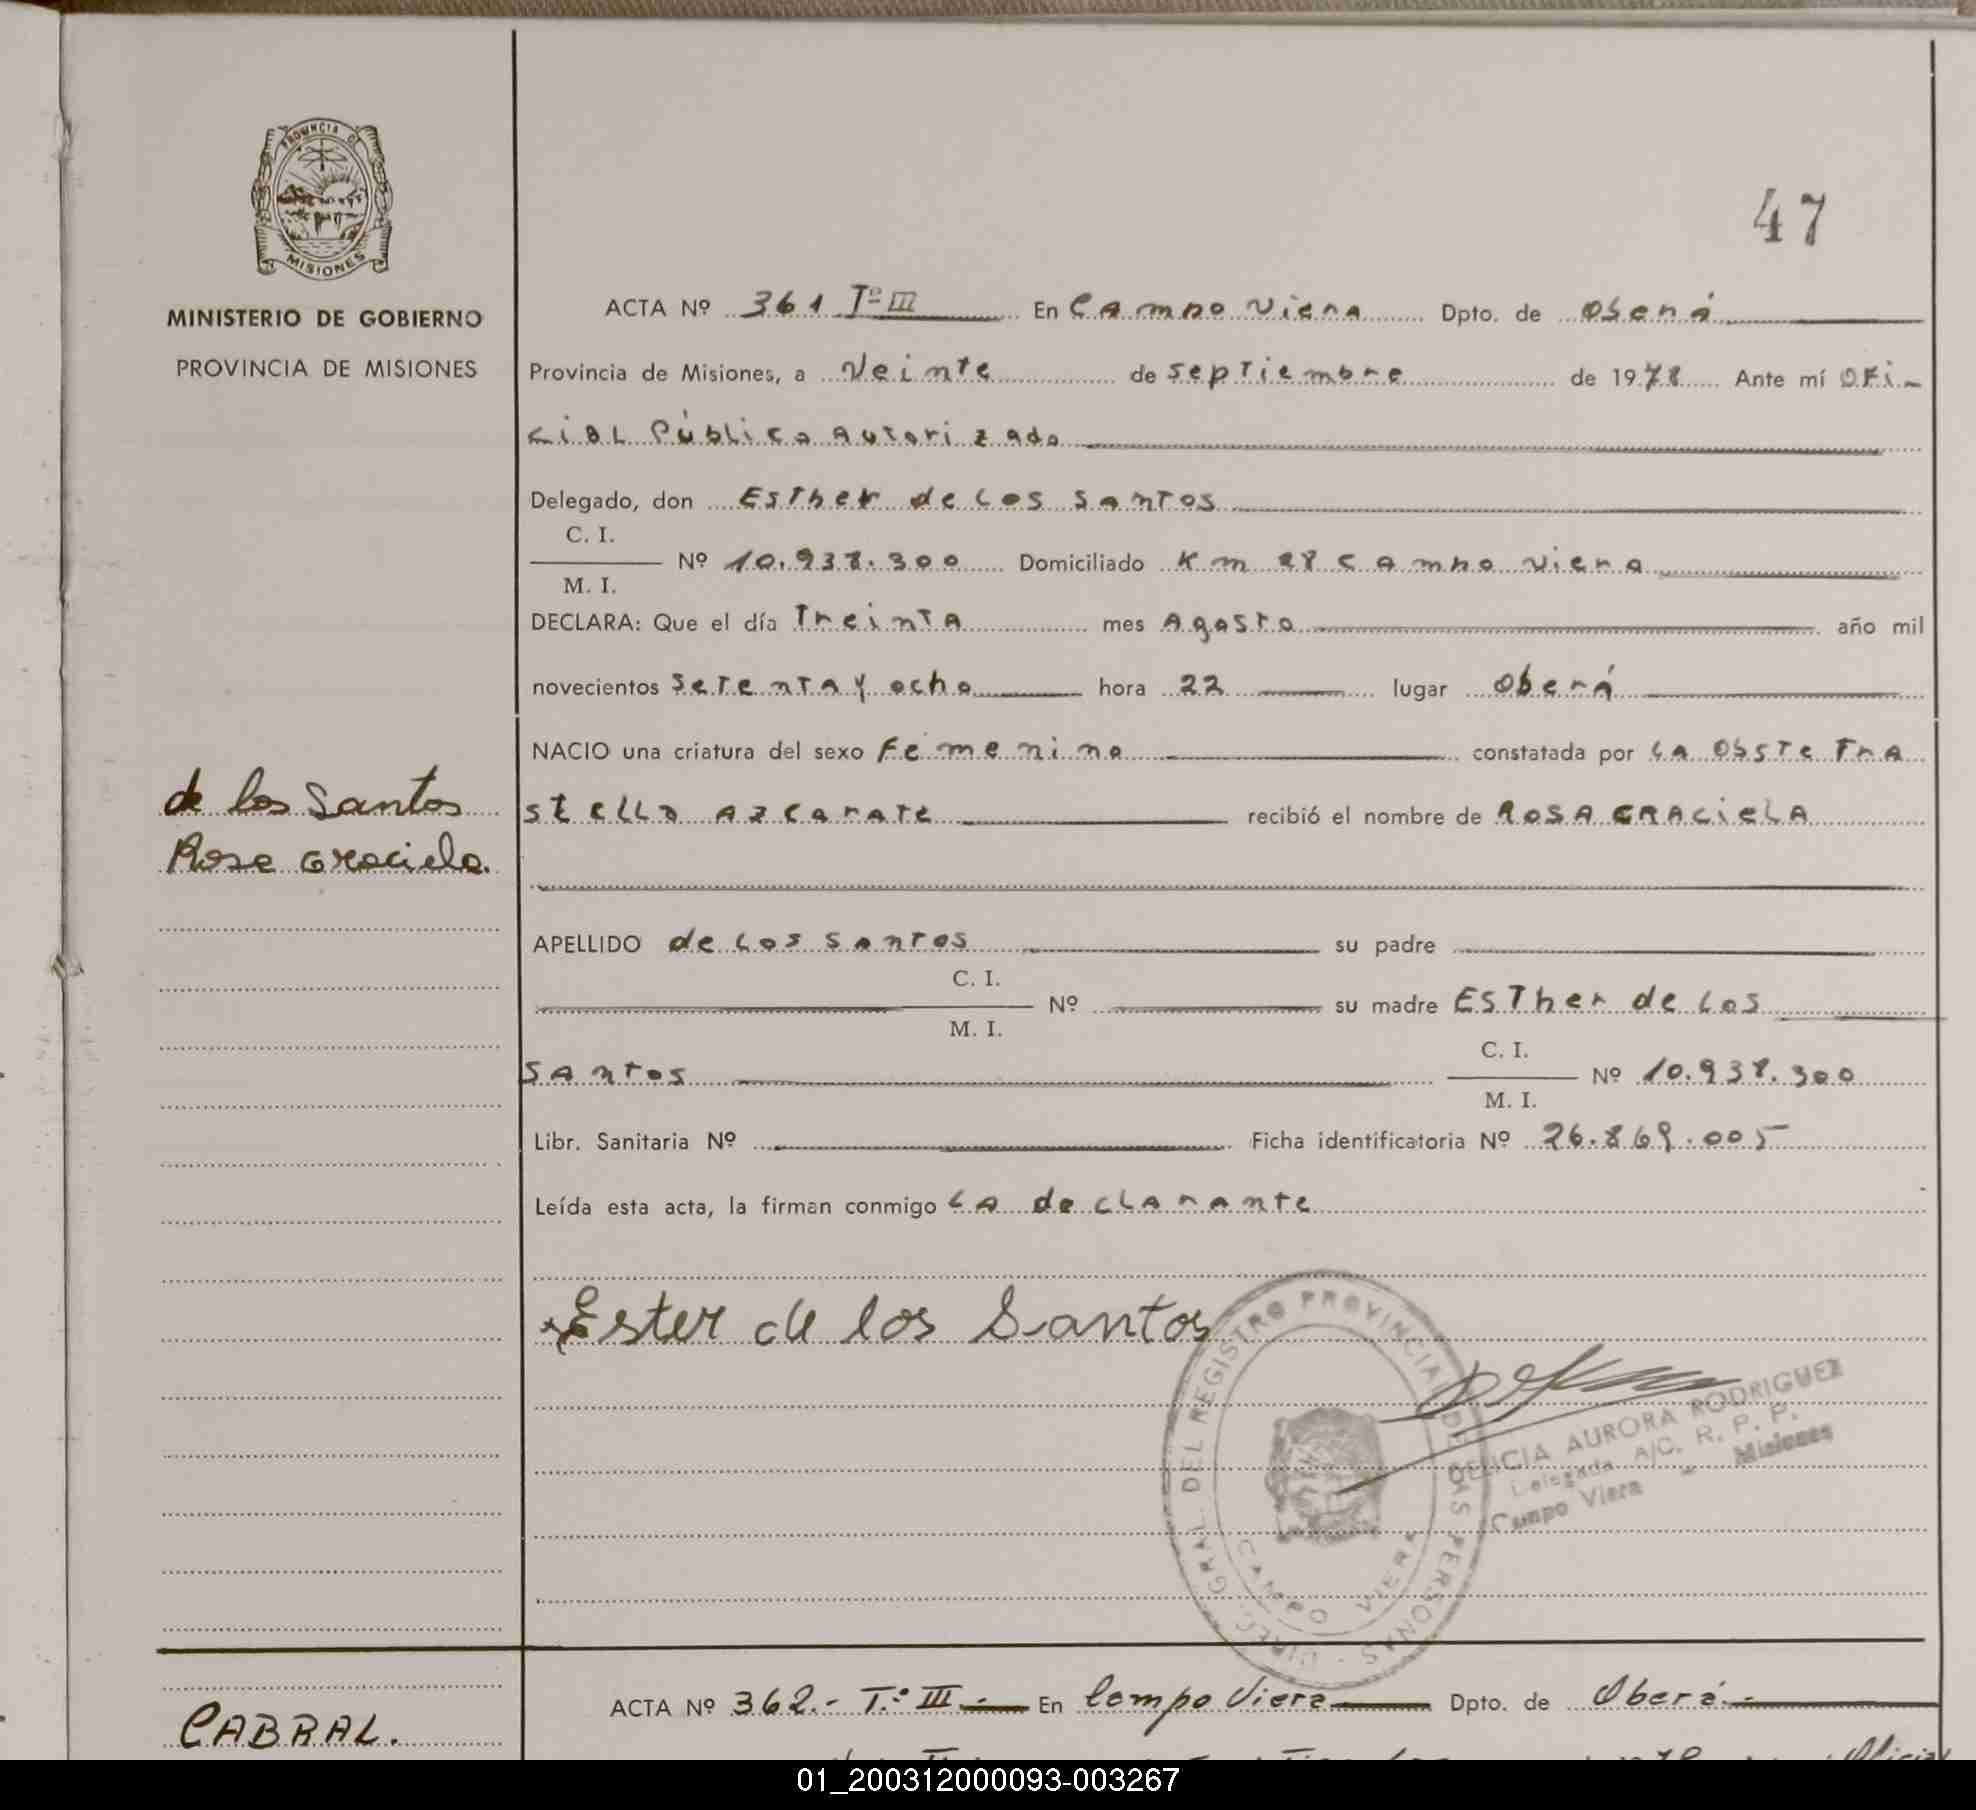 PROVINCIA DE
MISIONES
MINISTERIO DE GOBIERNO
PROVINCIA DE MISIONES
47
ACTA Nº 361 Tº III En Campo Viera Dpto. de Oberá
Provincia de Misiones, a Veinte de septiembre de 1978 Ante mí Ofi-
cial Público Autorizado
Delegado, don Esther de los Santos
C. I.
M. I. Nº 10.938.300 Domiciliado Km 28 Campo Viera
DECLARA: Que el día Treinta mes Agosto año mil
novecientos setenta y ocho hora 22 lugar Oberá
NACIO una criatura del sexo Femenino constatada por La Obstetra
Stella Azcarate recibió el nombre de ROSA GRACIELA
de los Santos
Rosa Graciela.
APELLIDO de los Santos su padre
C. I.
M. I. Nº su madre Esther de los
Santos C. I.
M. I. Nº 10.938.300
Libr. Sanitaria Nº Ficha identificatoria Nº 26.869.005
Leída esta acta, la firman conmigo La declarante
Ester de los Santos
DIREC. GRAL. DEL REGISTRO PROVINCIAL DE LAS PERSONAS
CAMPO VIERA
DELICIA AURORA RODRIGUEZ
Delegada A/C. R. P. P.
Campo Viera - Misiones
ACTA Nº 362.- T.º III - En Campo Viera Dpto. de Oberá.-
CABRAL.
01_200312000093-003267